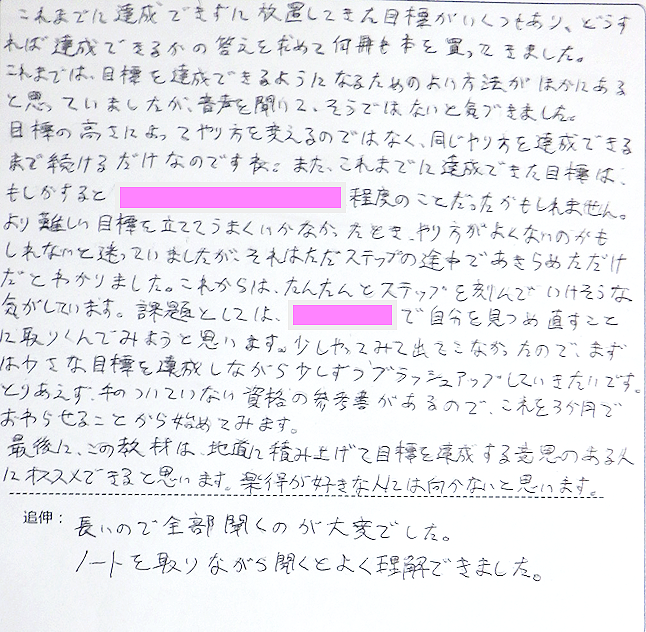 これまでに達成できずに放置してきた目標がいくつもあり、どうす
れば達成できるかの答えを求めて何冊も本を買ってきました。
これまでは、目標を達成できるようになるためのよい方法がほかにある
と思っていましたが、音声を聞いて、そうではないと気づきました。
目標の高さによってやり方を変えるのではなく、同じやり方を達成できる
まで続けるだけなのですね。また、これまでに達成できた目標は、
もしかすると 程度のことだったかもしれません。
より難しい目標を立ててうまくいかなかったとき、やり方がよくないのかも
しれないと迷っていましたが、それはただステップの途中であきらめただけ
だとわかりました。これからは、たんたんとステップを刻んでいけそうな
気がしています。課題としては、 で自分を見つめ直すこと
に取りくんでみようと思います。少しやってみて出てこなかったので、まず
は小さな目標を達成しながら少しずつブラッシュアップしていきたいです。
とりあえず、手のついていない資格の参考書があるので、これを3か月で
おわらせることから始めてみます。
最後に、この教材は、地道に積み上げて目標を達成する意思のある人
にオススメできると思います。楽得が好きな人には向かないと思います。
追伸： 長いので全部聞くのが大変でした。
ノートを取りながら聞くとよく理解できました。